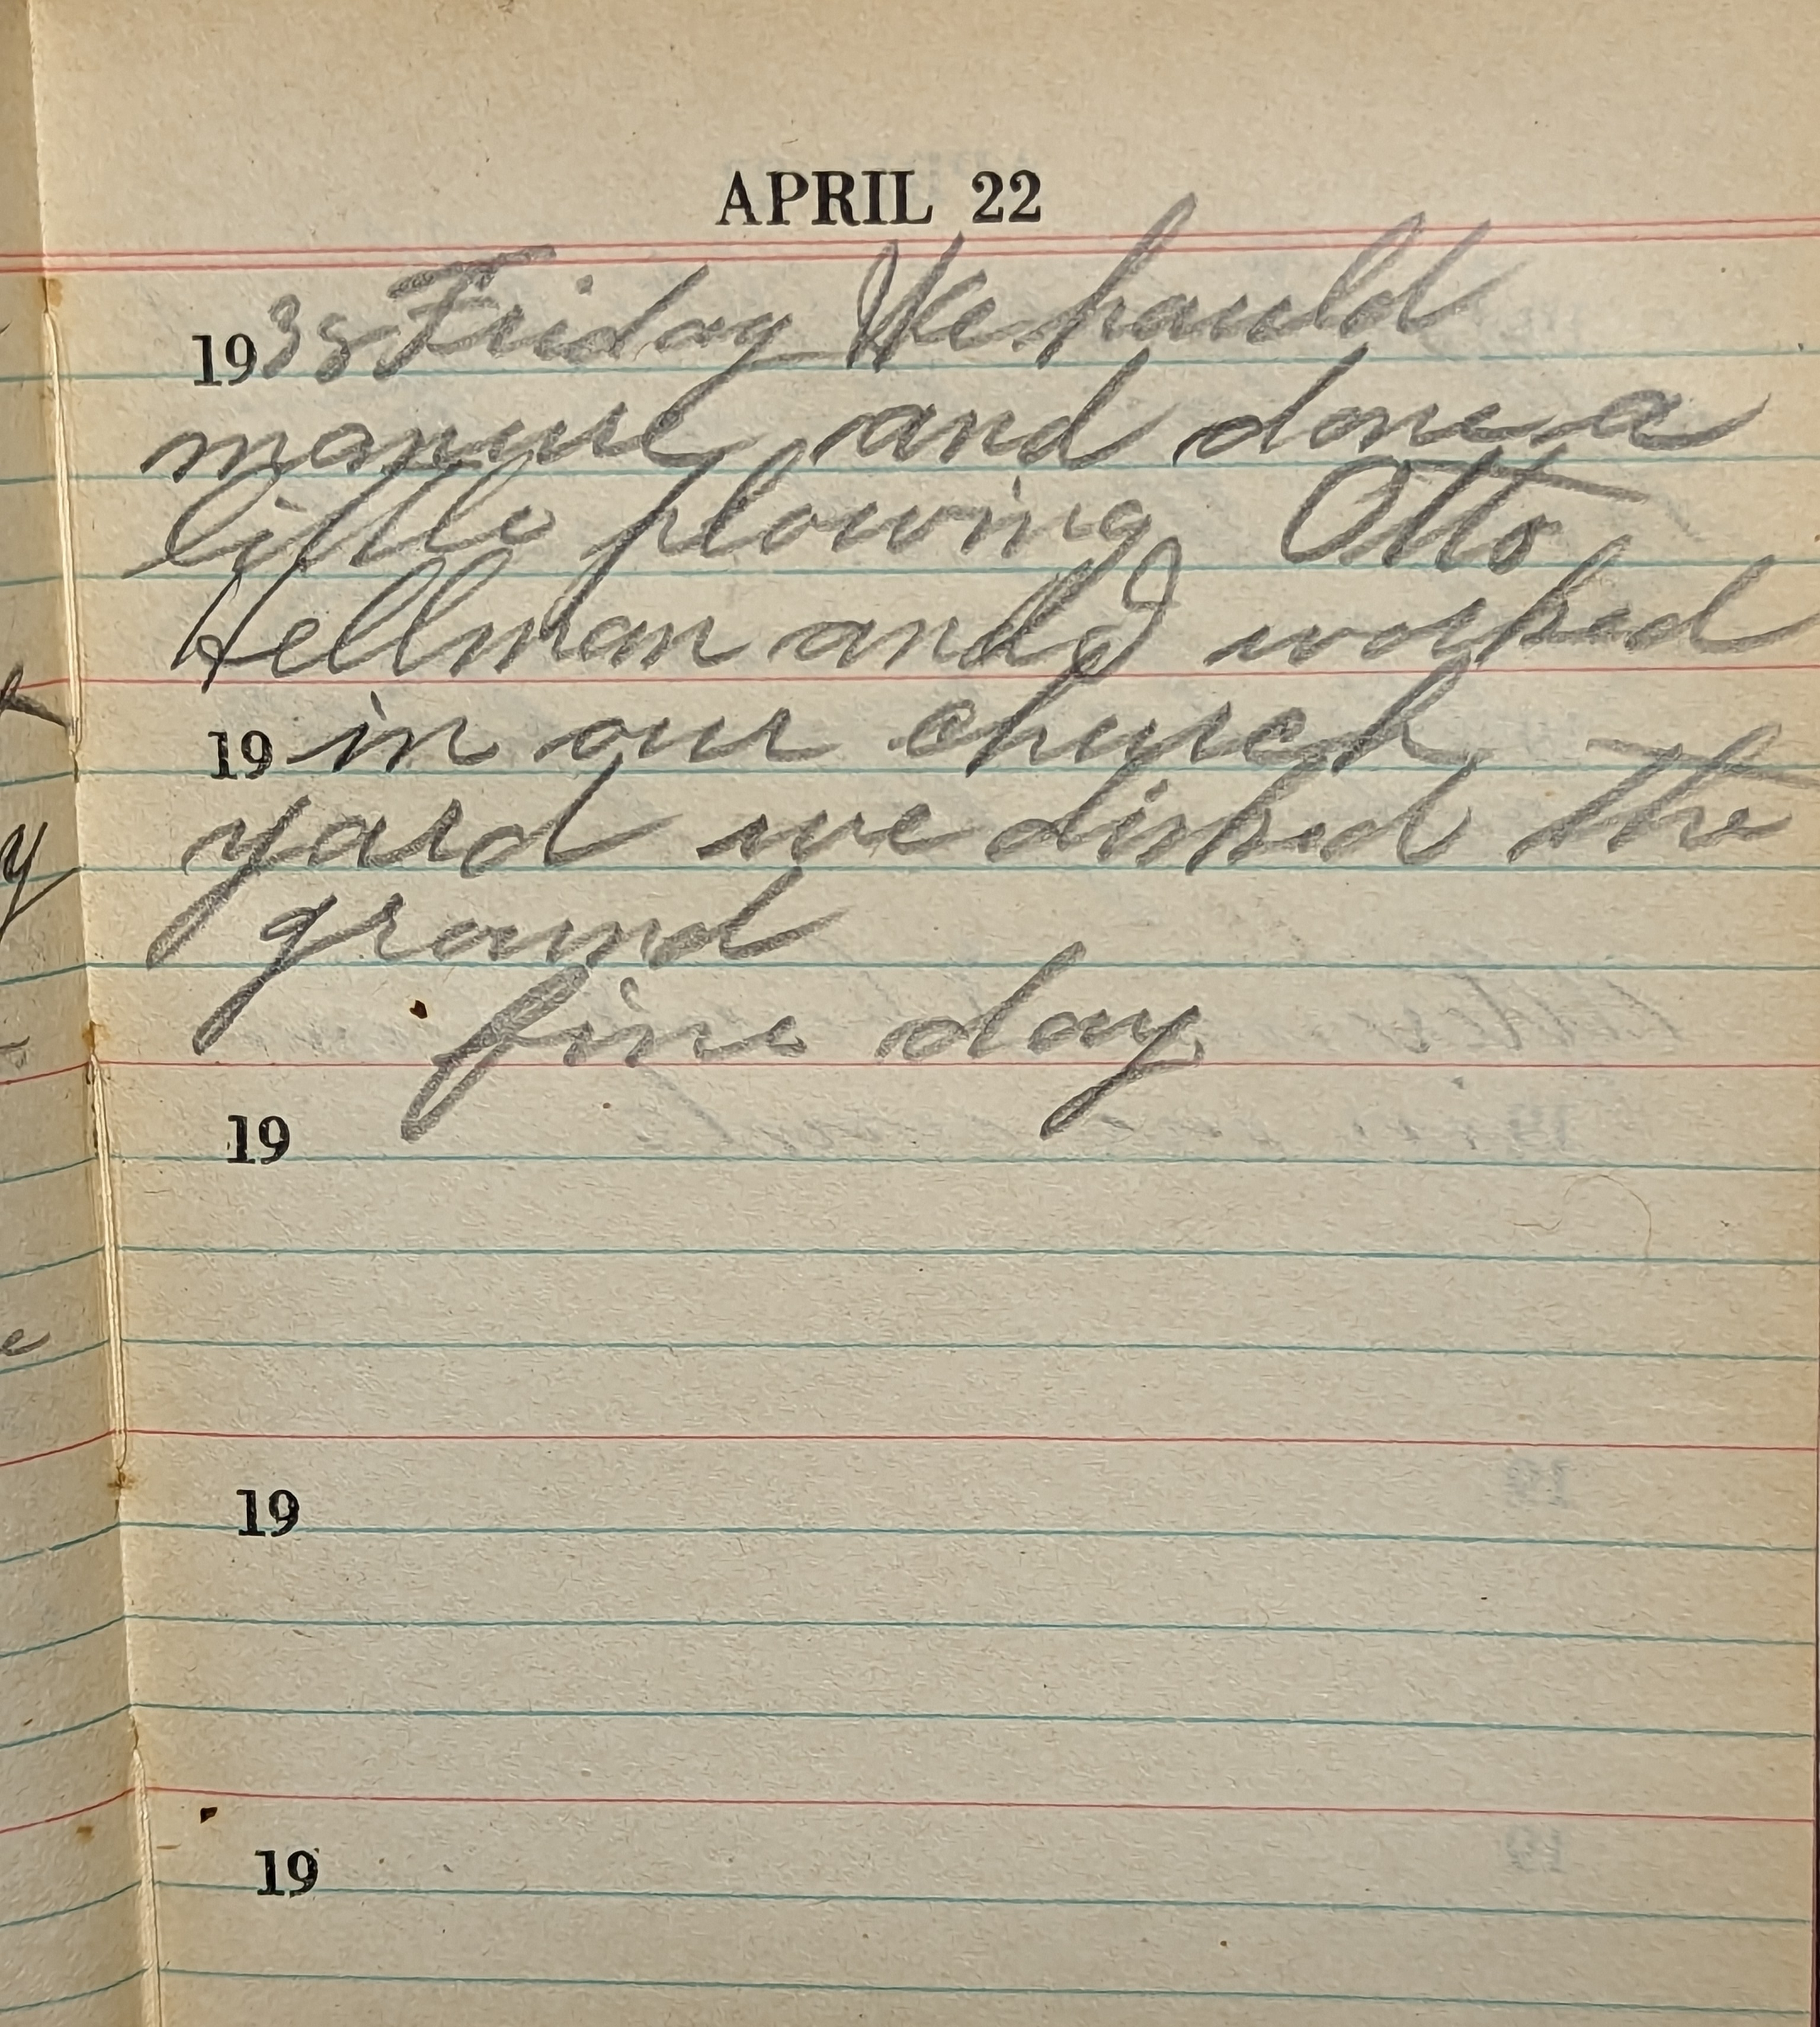 APRIL 22
1938 Friday We hauld
manure and done a
little plowing Otto
Hellman and I worked
19 in our church
yard we disked the
ground
fine day
19
19
19